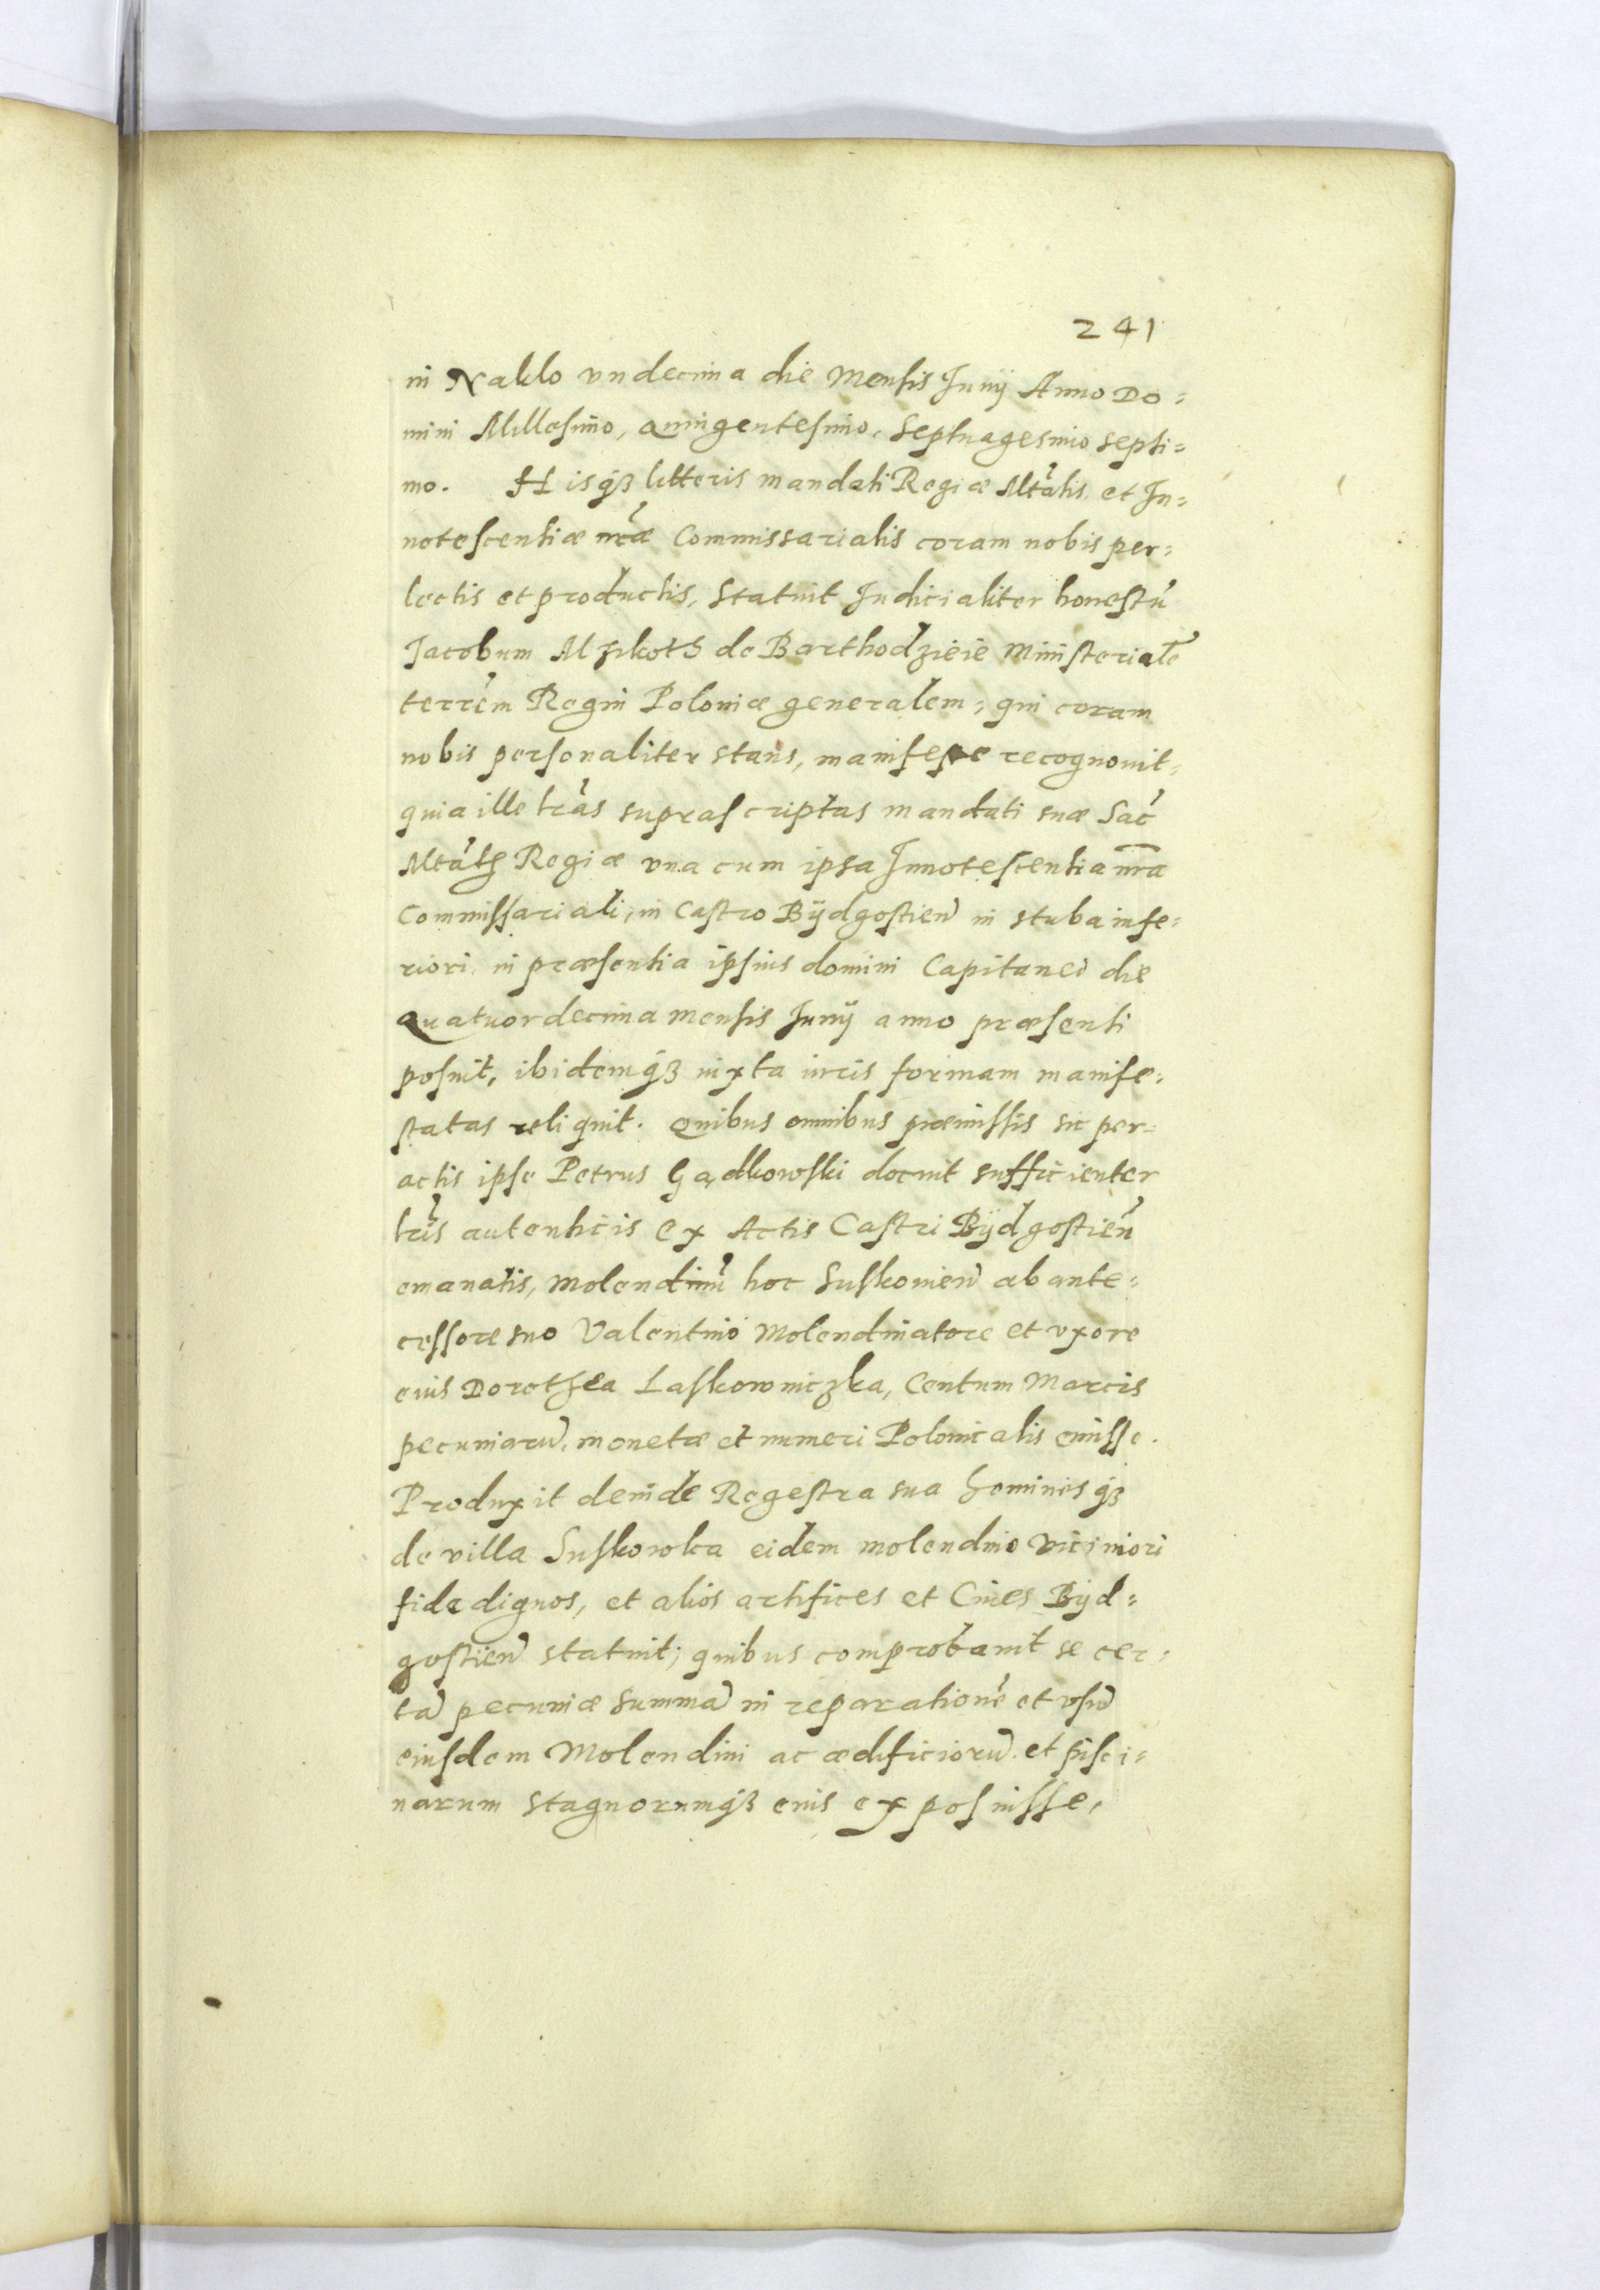 241
in Naklo vndecima die Mensis Junij Anno Do=
mini Millesimo, Quingentesimo, Septuagesimo septi=
mo. Hisq₃ litteris mandati Regiæ Mtatis et In=
notescentiæ nræ Commissarialis coram nobis per=
lectis et productis, statuit Judicialiter honestū
Jacobum Mzikoth de Barthodzieie Ministerialē
terrēm Regni Poloniæ generalem, qui coram
nobis personaliter stans, manifeste recognouit,
quia ille lrās suprascriptas mandati suæ Sac̄
Mtātis Regiæ vna cum ipsa Innotescentia nr̄a
Commissariali, in Castro Bÿdgostien̄ in stuba infe=
riori in præsentia ipsius domini Capitanei die
Quatuordecima mensis Junij anno præsenti
posuit, ibidemq₃ iuxta iuris formam manife=
statas reliquit. Quibus omnibus præmissis sic per=
actis ipse Petrus Gądkowski docuit sufficienter
lrīs autenticis ex Actis Castri Bÿdgostien̄
emanatis, Molendinū hoc Suskouien̄ ab ante=
cessore suo Valentino Molendinatore et vxore
eius Dorothea Laskowniczka, Centum Marcis
pecuniarū, monetæ et numeri Polonicalis emisse.
Produxit deinde Regestra sua hominesq₃
de villa Suskowka eidem molendino viciniori
fide dignos, et alios artifices et Ciues Bÿd=
gostien̄ statuit; quibus comprobauit se cer=
tā pecuniæ summā in reparationē et vsū
eiusdem Molendini ac ædificiorū et pisci=
narum stagnorumq₃ eius exposuisse,